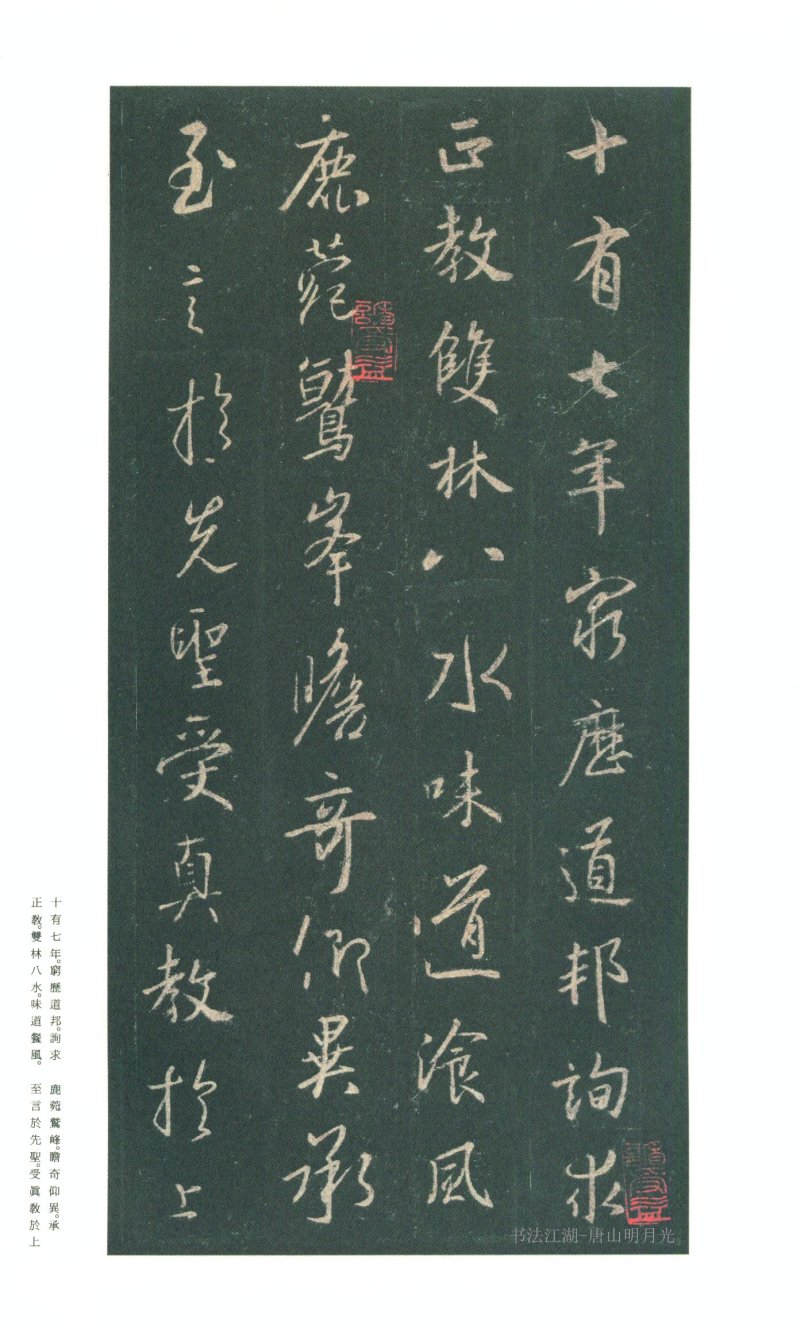 十有七年窮歷道邦詢求
正教雙林八水味道飡風
鹿菀鷲峯瞻奇仰異承
至言於先聖受真教於上
十有七年。窮歷道邦。詢求
正教。雙林八水。味道餐風。
鹿菀鷲峰。瞻奇仰異。承
至言於先聖。受眞教於上
书法江湖-唐山明月光